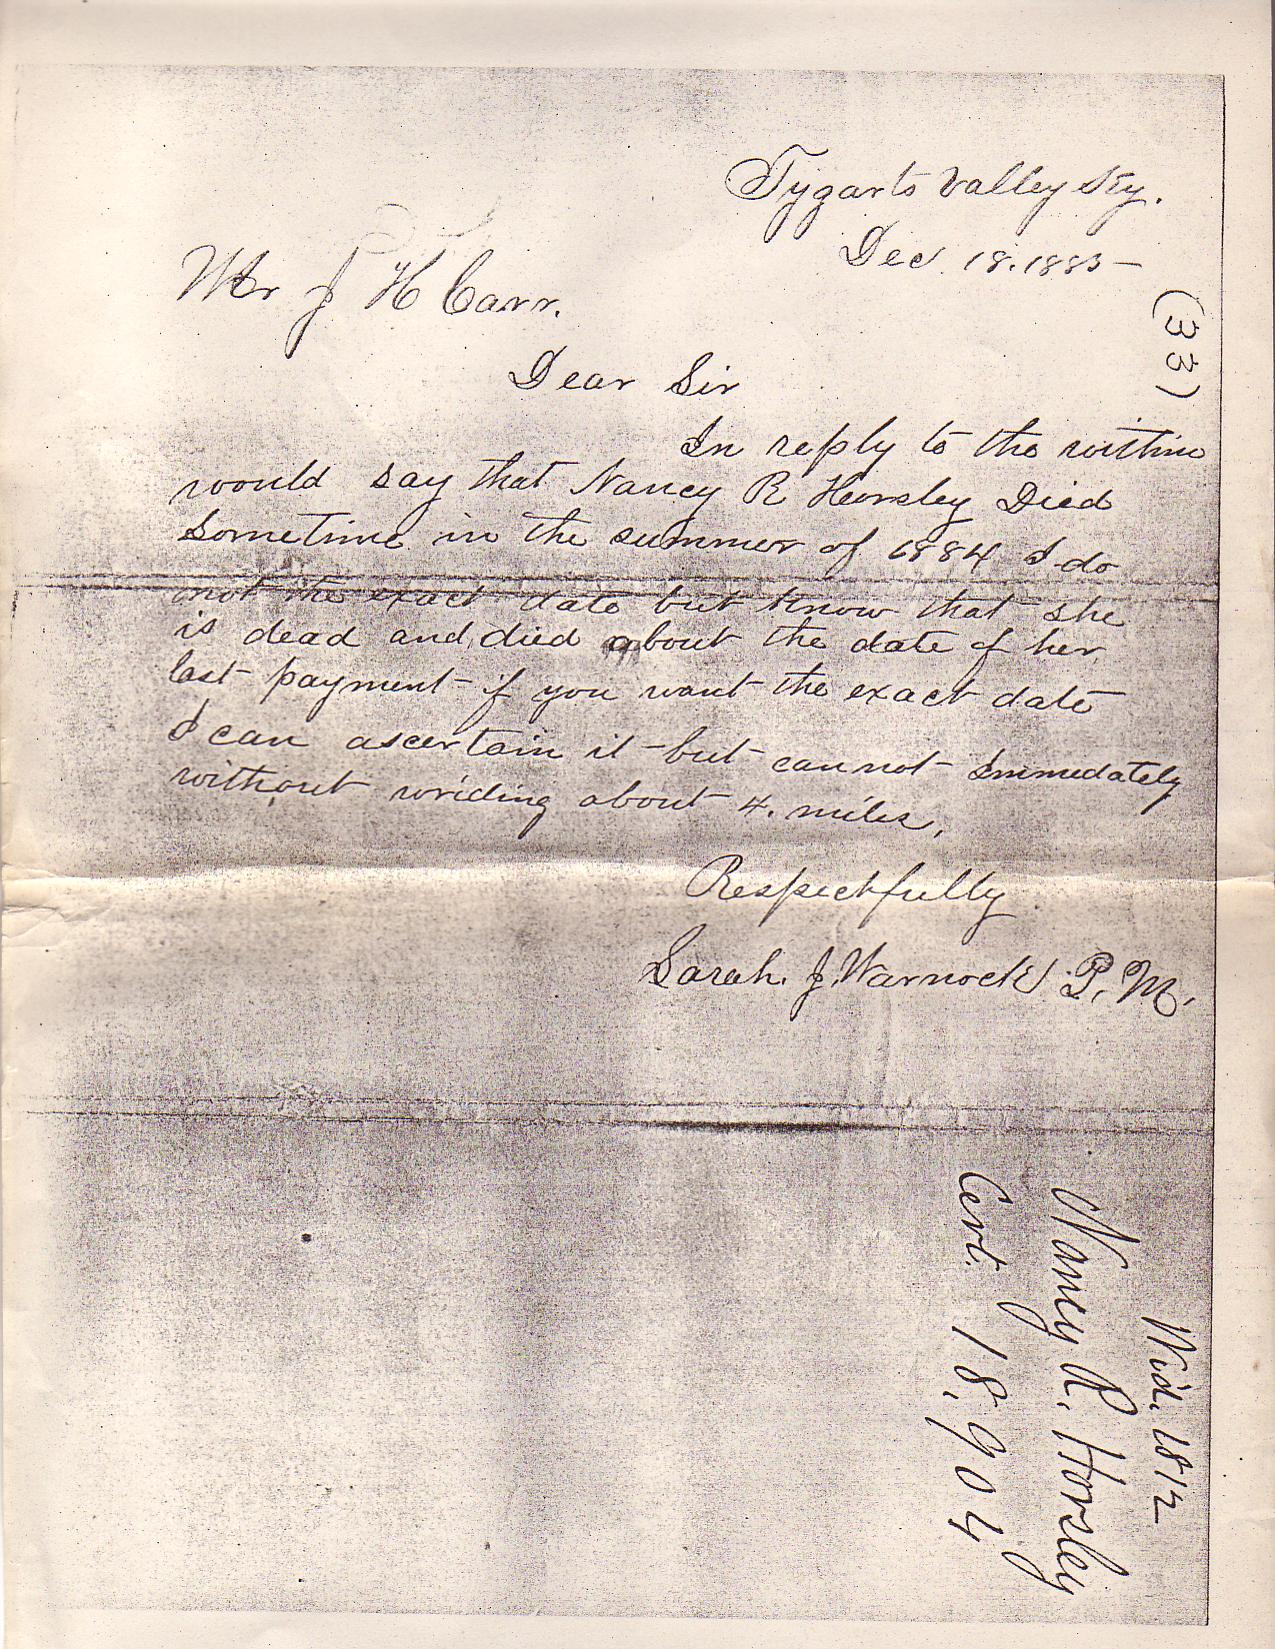 Tygarts Valley Ky.
Dec. 18. 1885
Mr J H Carr.
(33)
Dear Sir
In reply to the within
would say that Nancy R Horsley Died
Sometime in the summer of 1884 I do
not the exact date but know that she
is dead and died about the date of her
last payment if you want the exact date
I can ascertain it but cannot Immedately
without wriding about 4. miles.
Respectfully
Sarah. J. Warnock P. M.
Wid. 1812
Nancy R. Horsley
Cert. 18,904